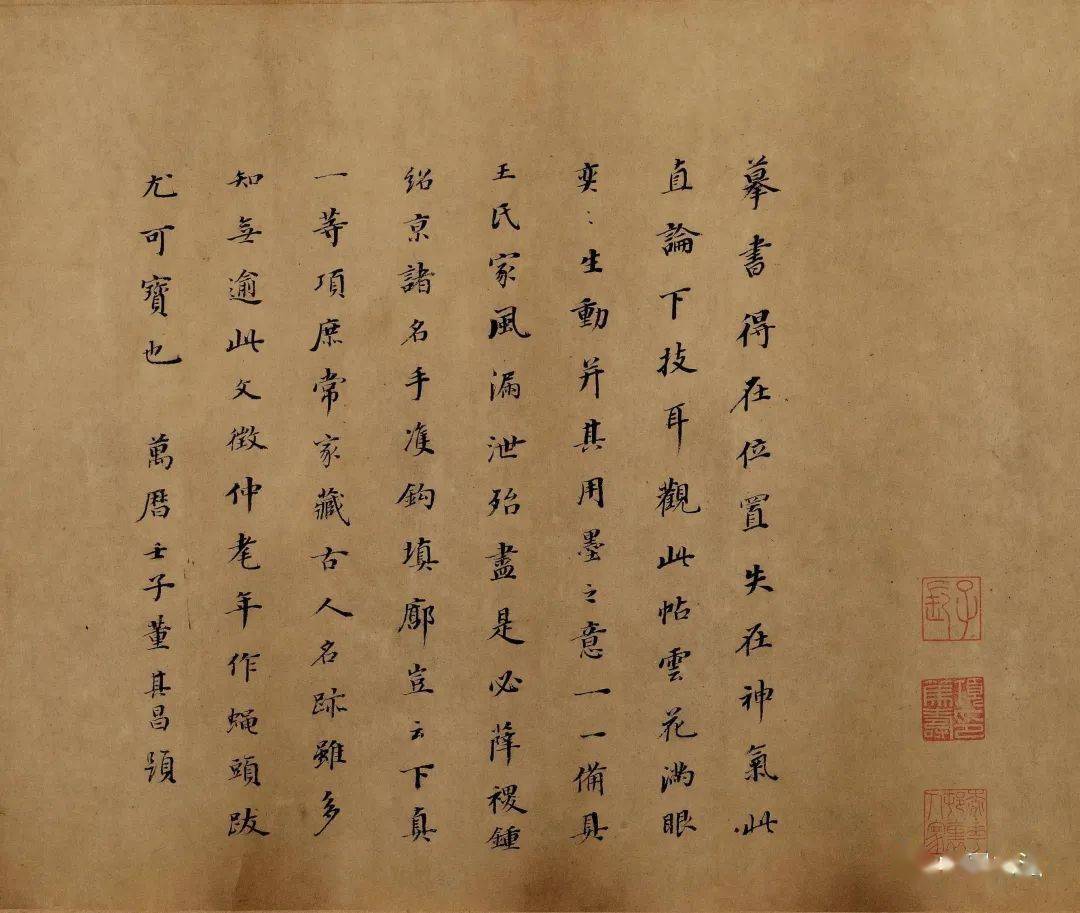 摹書得在位置失在神氣此
直論下技耳觀此帖雲花滿眼
奕〻生動并其用墨之意一一備具
王氏家風漏泄殆盡是必薛稷鍾
紹京諸名手雙鈎填廓豈云下真
一等項庶常家藏古人名跡雖多
知無逾此文徵仲老年作蠅頭跋
尤可寶也 萬曆壬子董其昌題
子長